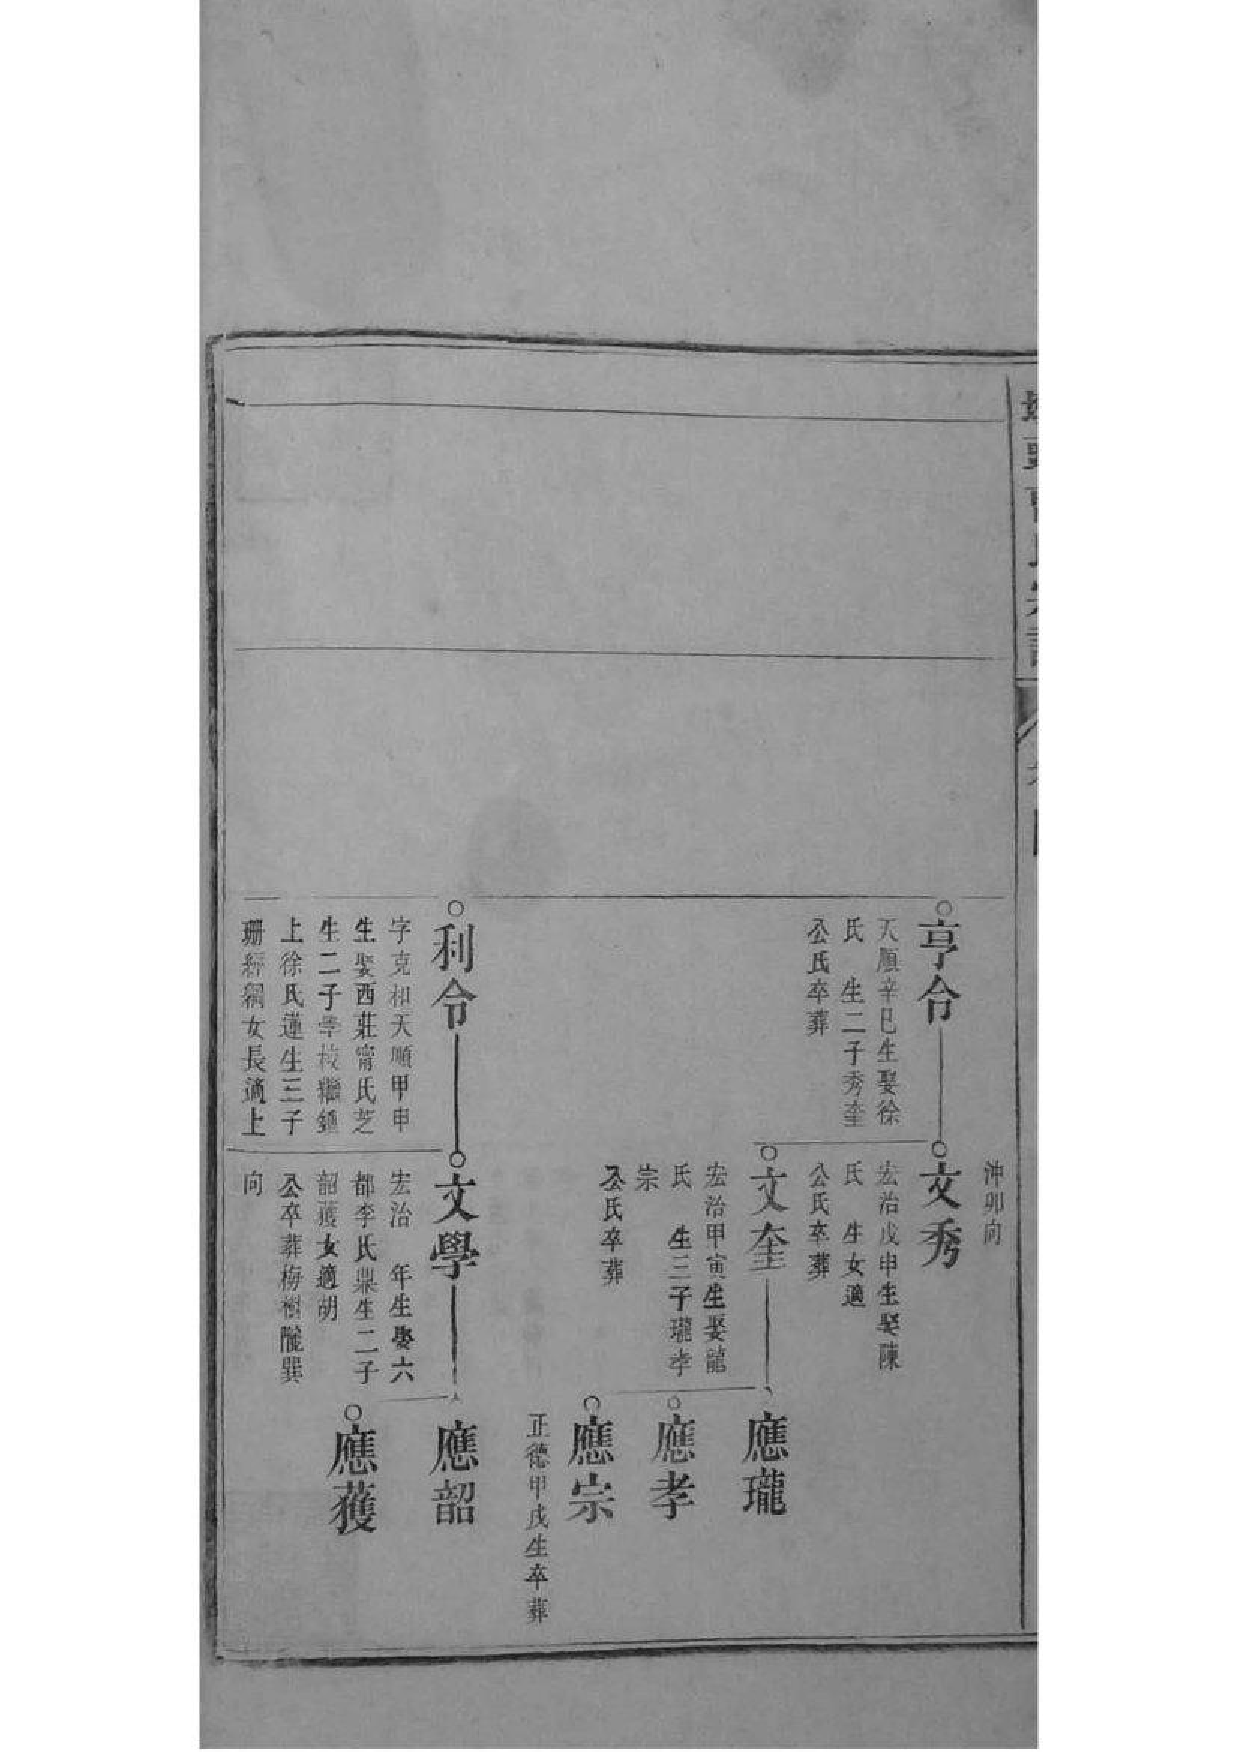 氏宗譜
沖卯向
亨令
天順辛巳生娶徐
氏 生二子秀奎
公氏卒葬
文秀
宏治戊申生娶陳
氏 生女適
公氏卒葬
文奎
宏治甲寅生娶龍
氏 生三子瓏孝
宗
公氏卒葬
應瓏
應孝
應宗
正德甲戌生卒葬
利令
字克和天順甲申
生娶西莊甯氏芝
生二子學校繼鍾
上徐氏蓮生三子
珊經綱女長適上
文學
宏治 年生娶六
都李氏鼎生二子
韶蒦女適胡
公卒葬梅樹隴巽
向
應韶
應蒦